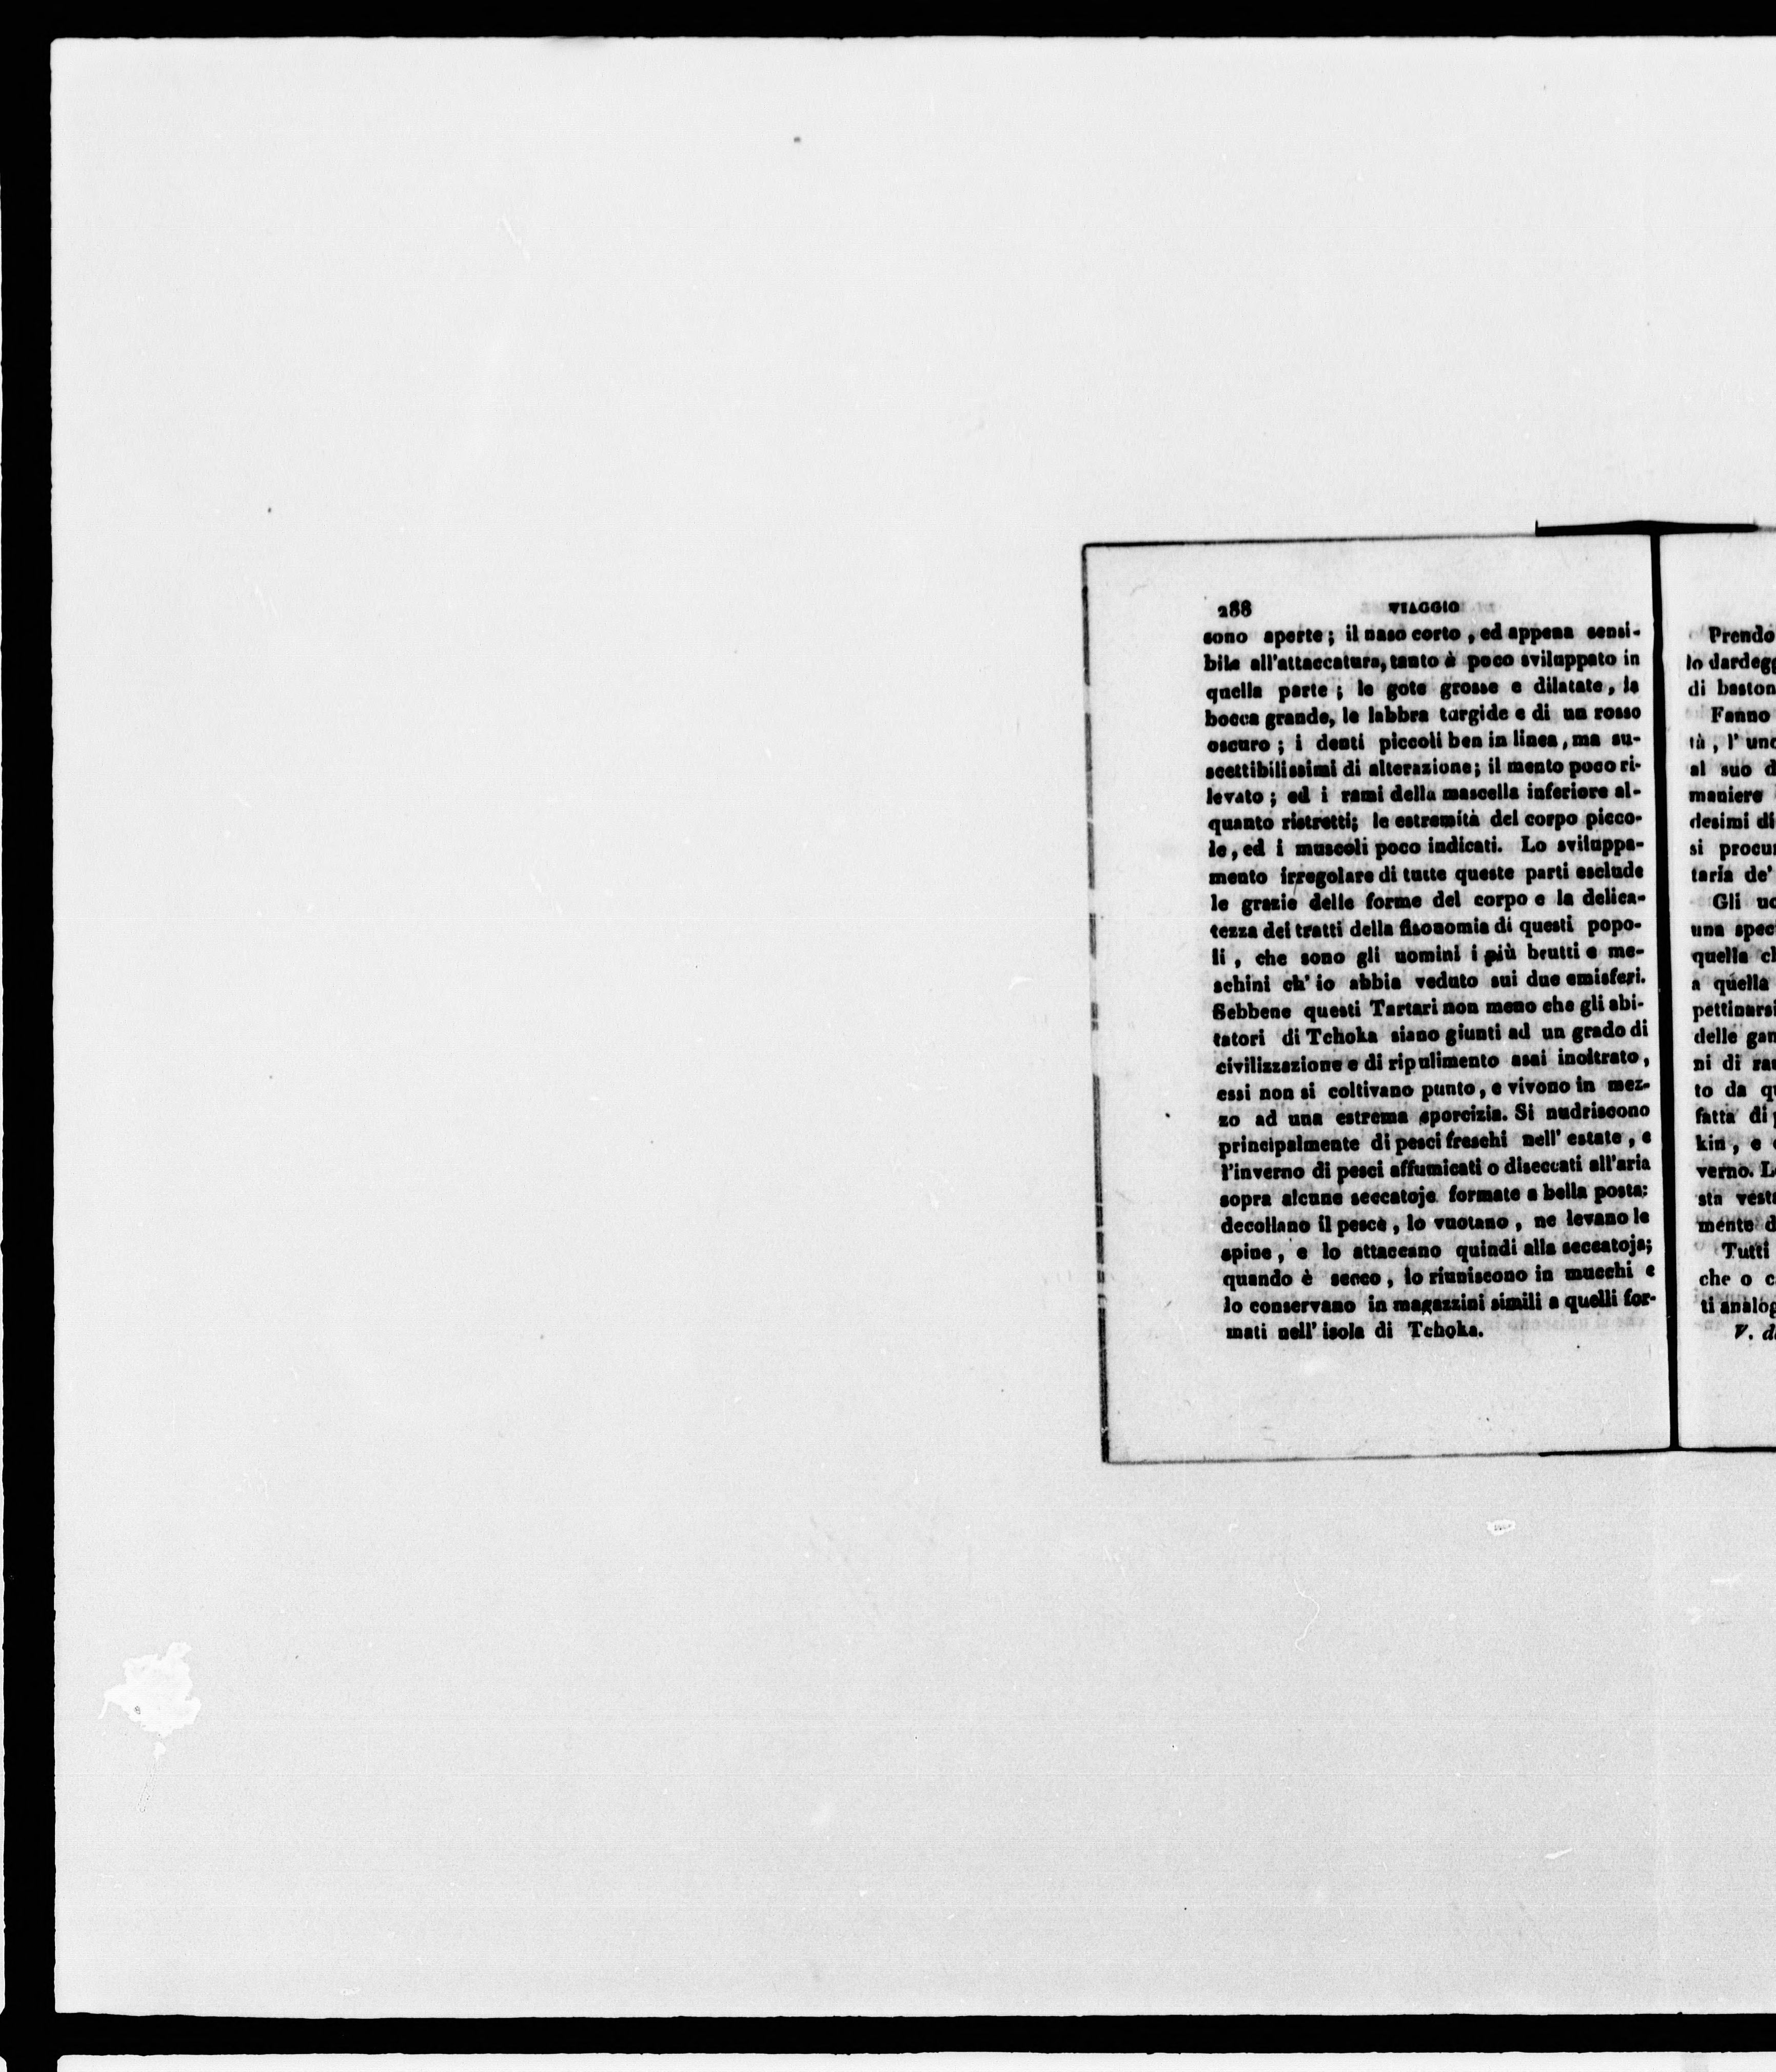 288 VIAGGIO
sono aperte; il naso corto, ed appena sensi-
bile all'attaccatura, tanto è poco sviluppato in
quella parte; le gote grosse e dilatate, la
bocca grande, le labbra turgide e di un rosso
oscuro; i denti piccoli ben in linea, ma su-
scettibilissimi di alterazione; il mento poco ri-
levato; ed i rami della mascella inferiore al-
quanto ristretti; le estremità del corpo picco-
le, ed i muscoli poco indicati. Lo sviluppa-
mento irregolare di tutte queste parti esclude
le grazie delle forme del corpo e la delica-
tezza dei tratti della fisonomia di questi popo-
li, che sono gli uomini i più brutti e me-
schini ch' io abbia veduto sui due emisferi.
Sebbene questi Tartari non meno che gli abi-
tatori di Tchoka siano giunti ad un grado di
civilizzazione e di ripulimento asai inoltrato,
essi non si coltivano punto, e vivono in mez-
zo ad una estrema sporcizia. Si nudriscono
principalmente di pesci freschi nell' estate, e
l'inverno di pesci affumicati o diseccati all'aria
sopra alcune seccatoje formate a bella posta:
decollano il pesce, lo vuotano, ne levano le
spine, e lo attaccano quindi alla seccatoja;
quando è secco, lo riuniscono in mucchi e
lo conservano in magazzini simili a quelli for-
mati nell' isola di Tchoka.
Prendo
lo dardegg
di baston
Fanno
tà, l' uno
al suo d
maniere
desimi di
si procur
taria de'
Gli uo
una spec
quella ch
a quella
pettinarsi
delle gam
ni di ra
to da qu
fatta di p
kin, e
verno. L
sta vest
mente d
Tutti
che o c
ti analog
V. d